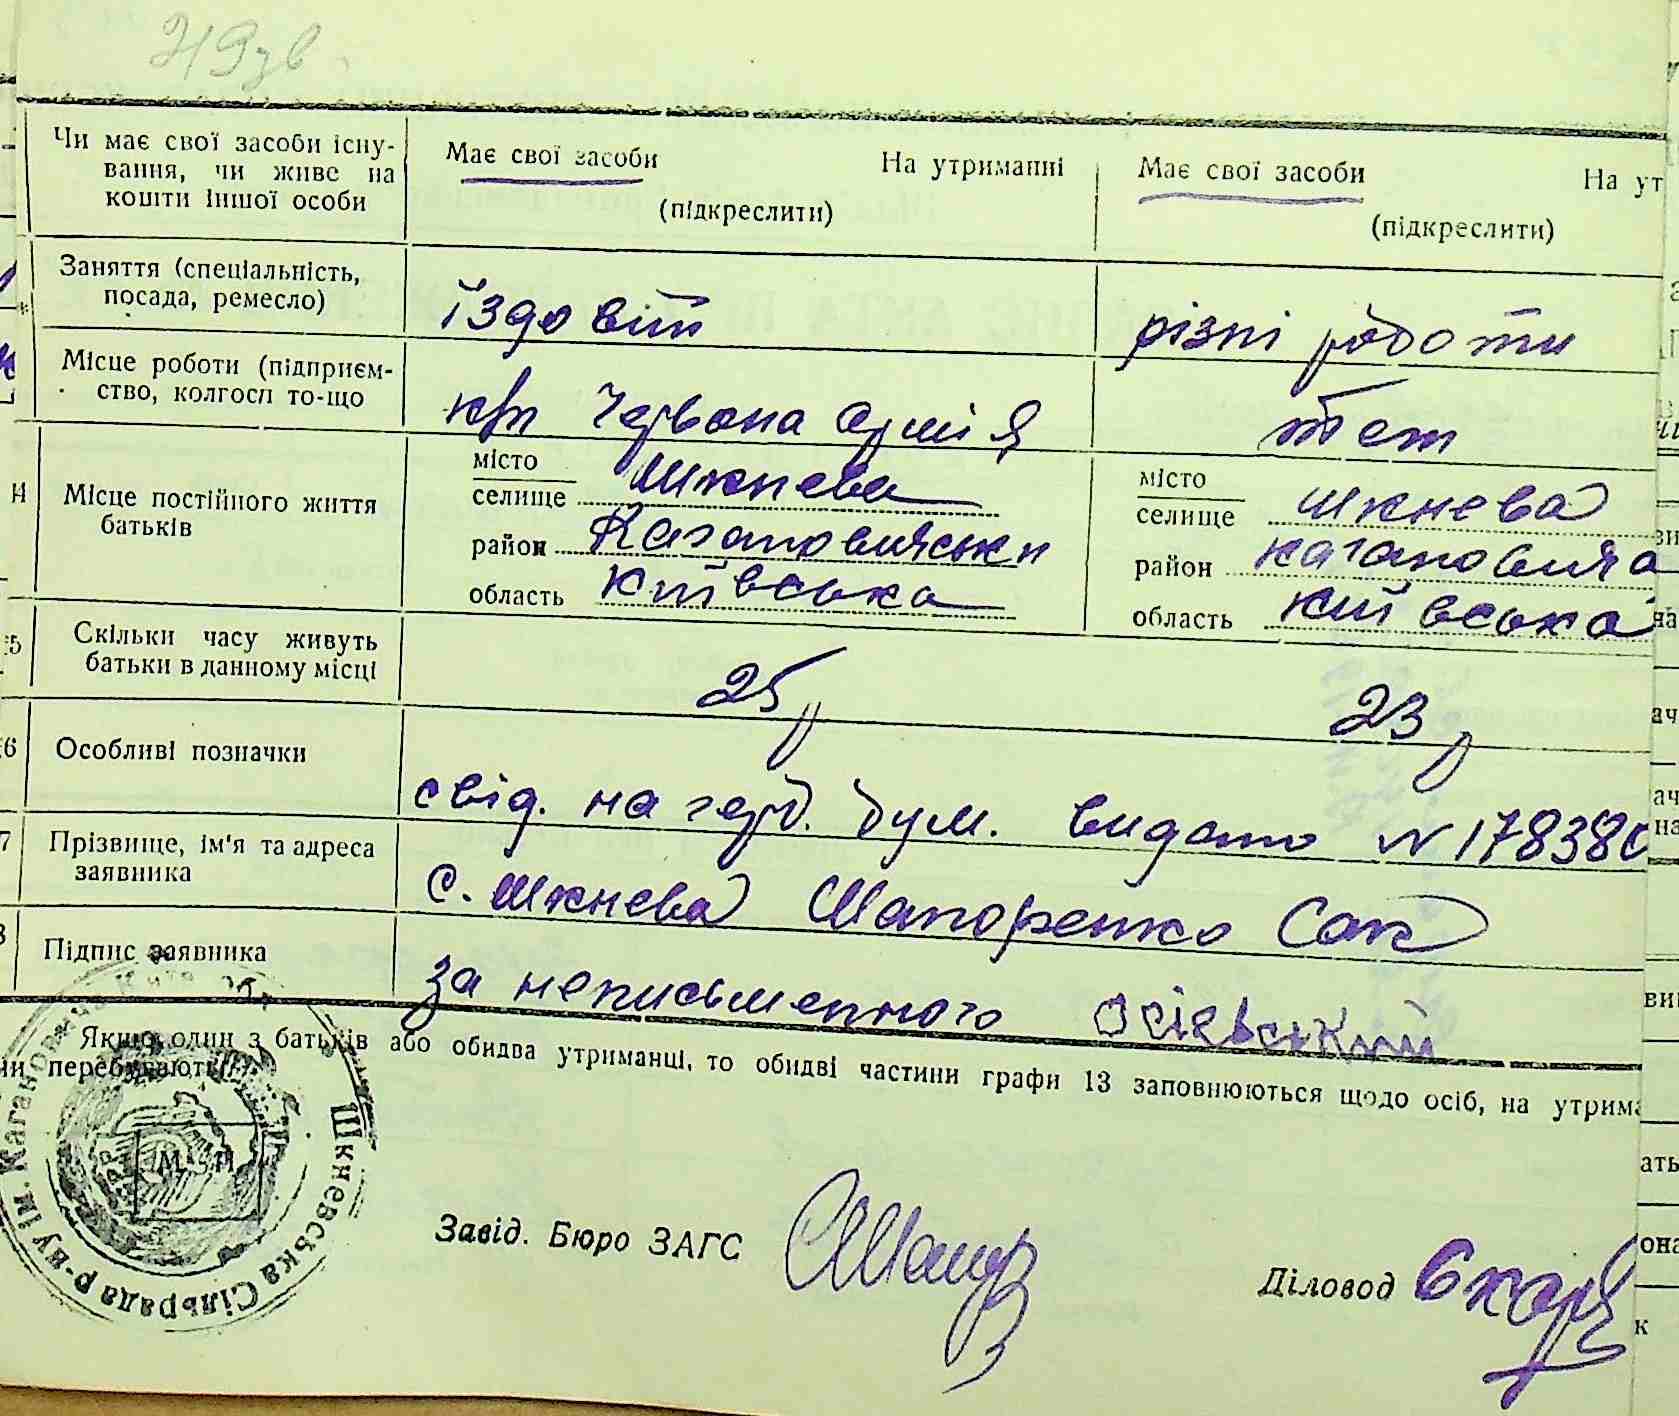 Чи має свої засоби існу-
вання, чи живе на
кошти іншої особи
Має свої засоби На утриманні
(підкреслити)
Має свої засоби На ут
(підкреслити)
Заняття (спеціальність,
посада, ремесло)
їздовий
різні роботи
Місце роботи (підприєм-
ство, колгосп то-що
к/г Червона Армія
теж
14
Місце постійного життя
батьків
місто
селище Шкнева
район Кагановицьки
область Київська
місто
селище Шкнева
район Кагановича
область Київська
15
Скільки часу живуть
батьки в данному місці
25 р
23 р
16
Особливі позначки
свід. на герб. бум. видано N 178380
17
Прізвище, ім'я та адреса
заявника
с. Шкнева Шапоренко Сак
Підпис заявника
за неписьменного
Якщо один з батьків або обидва утриманці, то обидві частини графи 13 заповнюються щодо осіб, на утрима
чи перебувають
М. П.
Шкневська Сільрада р-ну ім. Кагановича
Завід. Бюро ЗАГС
Діловод